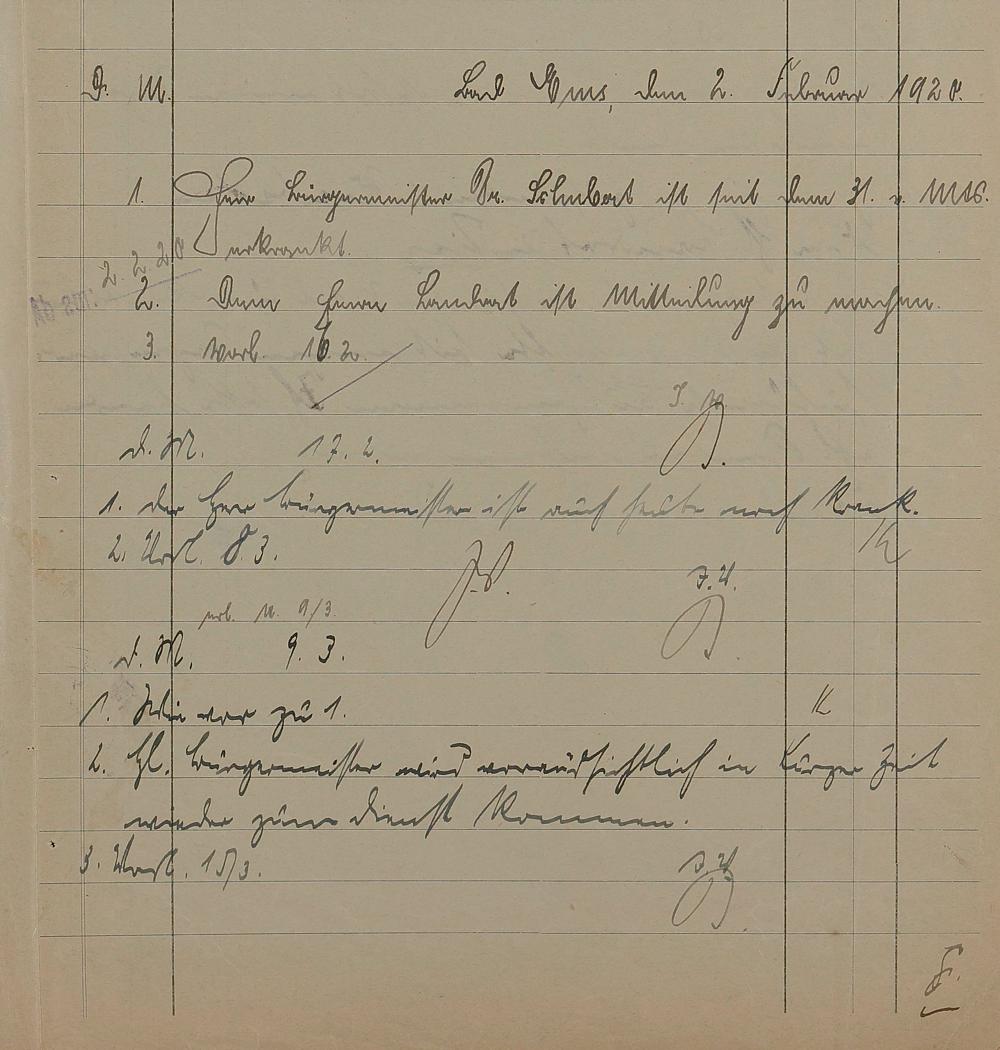 D. M. Bad Ems, den 2. Februar 1920.
1. Herr Bürgermeister Dr. Schubert ist seit dem 31. v. Mts.
erkrankt.
2. 2. 20
2. Dem Herrn Landrat ist Mitteilung zu machen.
3. Worl. 16. 2.
J. V.
d. M. 17. 2.
1. der Herr Bürgermeister ist auch heute noch krank.
2. Worl. 8. 3.
J. V.
9/3.
d. M. 9. 3.
1. Wie vor zu 1.
2. H. Bürgermeister wird voraussichtlich in kurzer Zeit
wieder zum Dienst kommen.
3. Worl. 15/3.